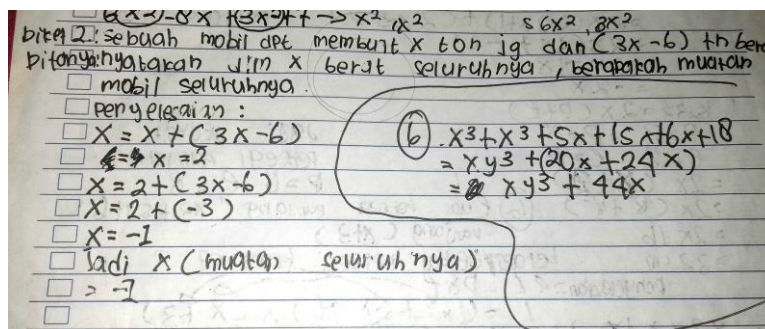 6(x-3)-8x +(3x²)+t → x² , x² 5 6x² , 8x²
diket 2 : sebuah mobil dpt membuat x ton jg dan (3x-6) tn bera
ditanya:nyatakan dlm x berat seluruhnya , berapakah muatan
mobil seluruhnya.
penyelesaian :
x = x + (3x-6)
x = 2
x = 2 + (3x-6)
x = 2 + (-3)
x = -1
Jadi x (muatan seluruhnya)
= -1
6 . x³+x³+5x+15x+6x+18
= xy³ +(20x +24x)
= xy³ + 44x